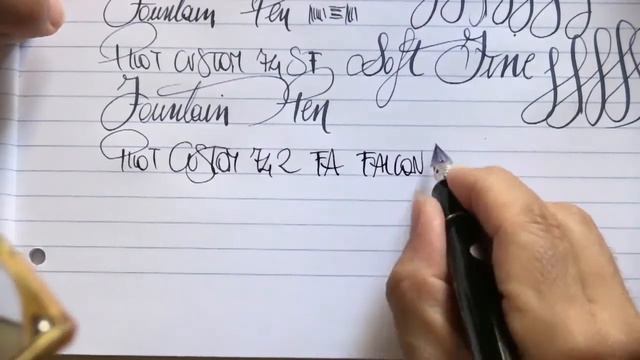 Fountain Pen
PILOT CUSTOM 74 SF Soft Fine
Fountain Pen
PILOT CUSTOM 742 FA FALCON